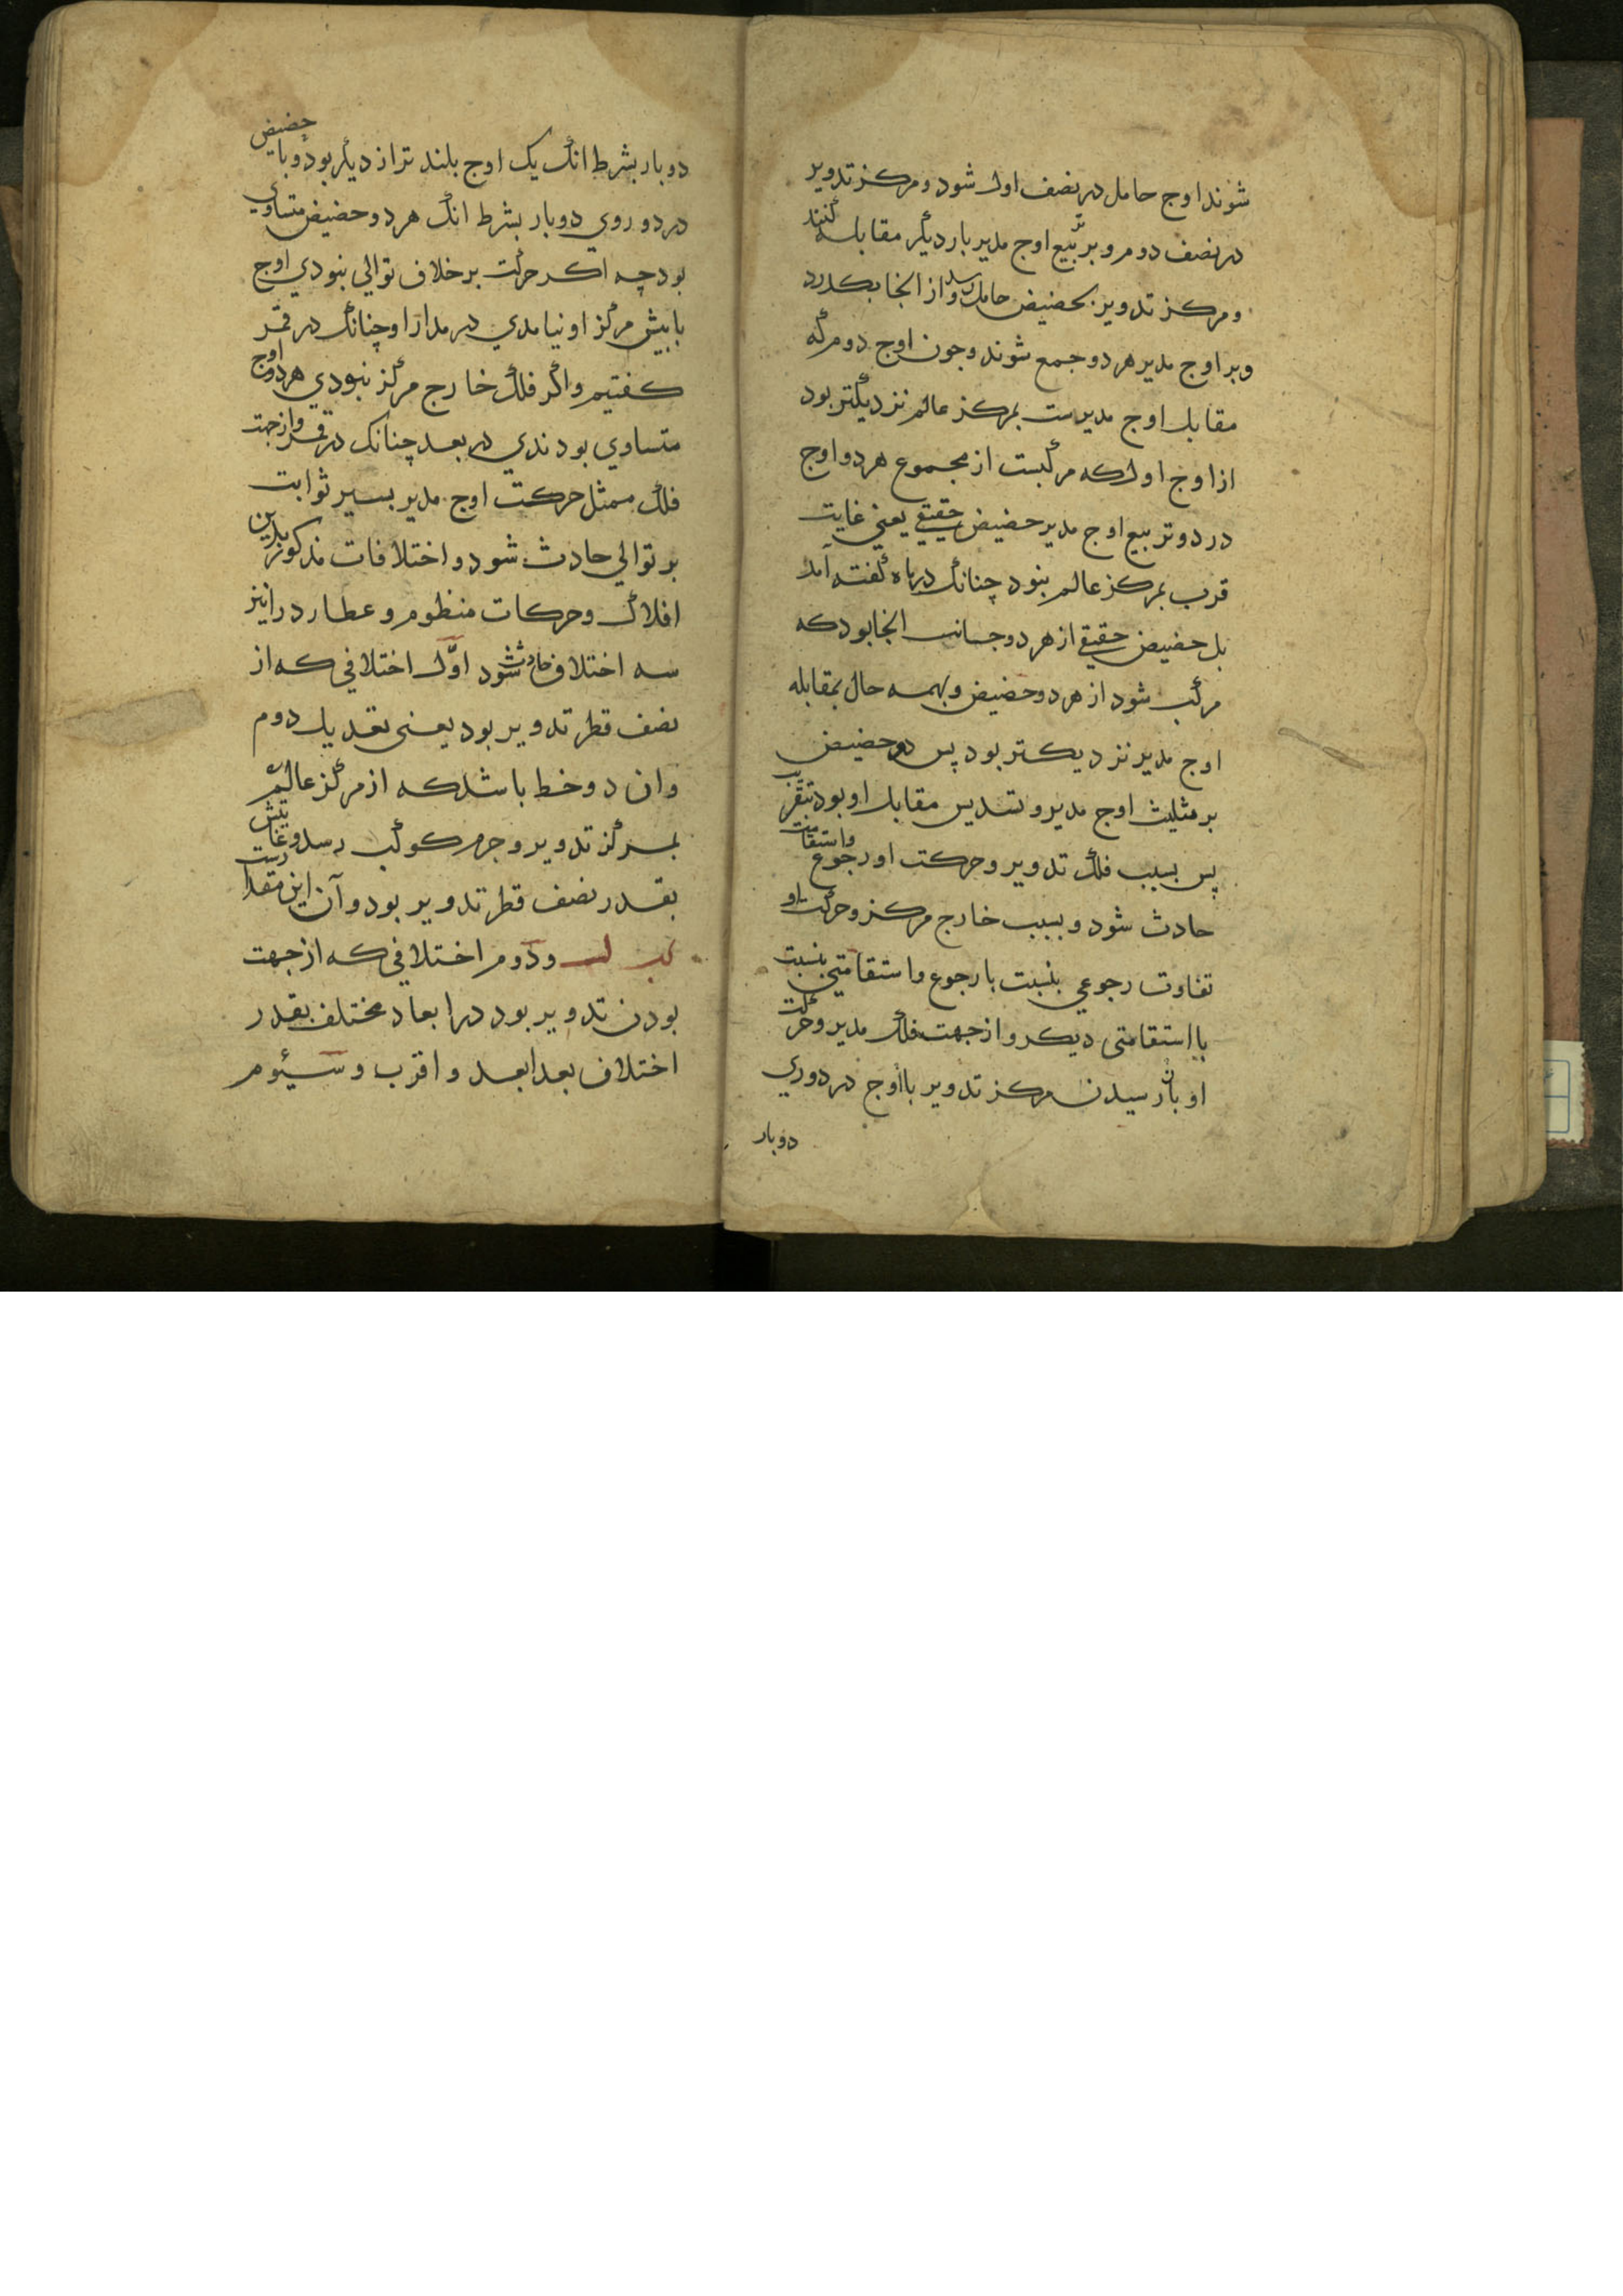 شوند اوج حامل در نصف اول شود و مرکز تدویر
در نصف دوم و بر تربیع اوج مدیر بار دیگر مقابله کنند
و مرکز تدویر بحضیض حامل رسد و از انجا بکدرد
و بر اوج مدیر هر دو جمع شوند و جون اوج دوم که
مقابل اوج مدیرست بمرکز عالم نزدیکتر بود
از اوج اول که مرکبست از مجموع هر دو اوج
در دو تربیع اوج مدیر حضیض حقیقی یعنی غایت
قرب بمرکز عالم نبود چنانک در ماه گفته آمد
بل حضیض حقیقی از هر دو جانب انجا بود که
مرکب شود از هر دو حضیض و بهمه حال بمقابله
اوج مدیر نزدیکتر بود پس دو حضیض
بر مثلیث اوج مدیر و تسدیس مقابل او بود بتقریب
پس بسبب فلک تدویر و حرکت او رجوع واستقامت
حادث شود و بسبب خارج مرکز و حرکت او
تفاوت رجوعی بنسبت با رجوع و استقامتی بنسبت
با استقامتی دیکر و از جهت فلک مدیر و حرکت
او باز رسیدن مرکز تدویر با اوج در دوری
دوبار
دو بار بشرط انک یک اوج بلند تر از دیگر بود و با حضیض
در دوروی دو بار بشرط انک هر دو حضیض متساوی
بود چه اکر حرکت بر خلاف توالی نبودی اوج
با بیش مرکز او نیامدی در مدار او چنانک در قمر
کفتیم و اگر فلک خارج مرکز نبودی هر دو اوج
متساوی بودندی در بعد چنانک در قمر و از جهت
فلک ممثل حرکت اوج مدیر بسیر ثوابت
بر توالی حادث شود و اختلافات مذکور بدین
افلاک و حرکات منظوم و عطارد را نیز
سه اختلاف حادث شود اوّل اختلافی که از
نصف قطر تدویر بود یعنی تعدیل دوم
وان دو خط باشد که از مرکز عالم
بمرکز تدویر و جرم کوکب رسد و غایتش
بقدر نصف قطر تدویر بود و آن این مقدارست
و دوم اختلافی که از جهت
بودن تدویر بود در ابعاد مختلف بقدر
اختلاف بعد ابعد و اقرب و سیئوم